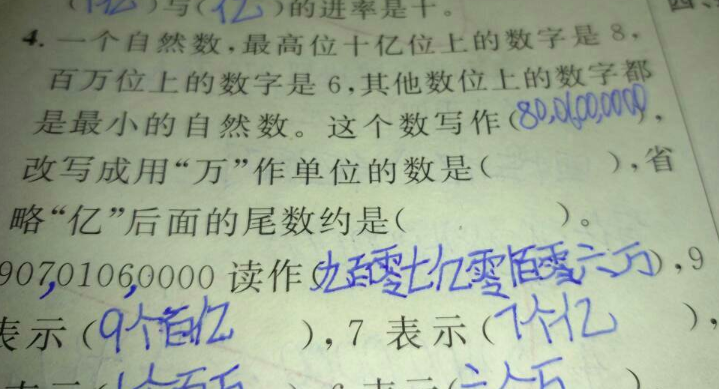 亿)与(亿)的进率是十。
4. 一个自然数,最高位十亿位上的数字是8,
百万位上的数字是6,其他数位上的数字都
是最小的自然数。这个数写作(80,0600,0000),
改写成用“万”作单位的数是( ),省
略“亿”后面的尾数约是( )。
907,0106,0000读作(九百零七亿零百零六万),9
表示(9个百亿),7表示(7个亿),